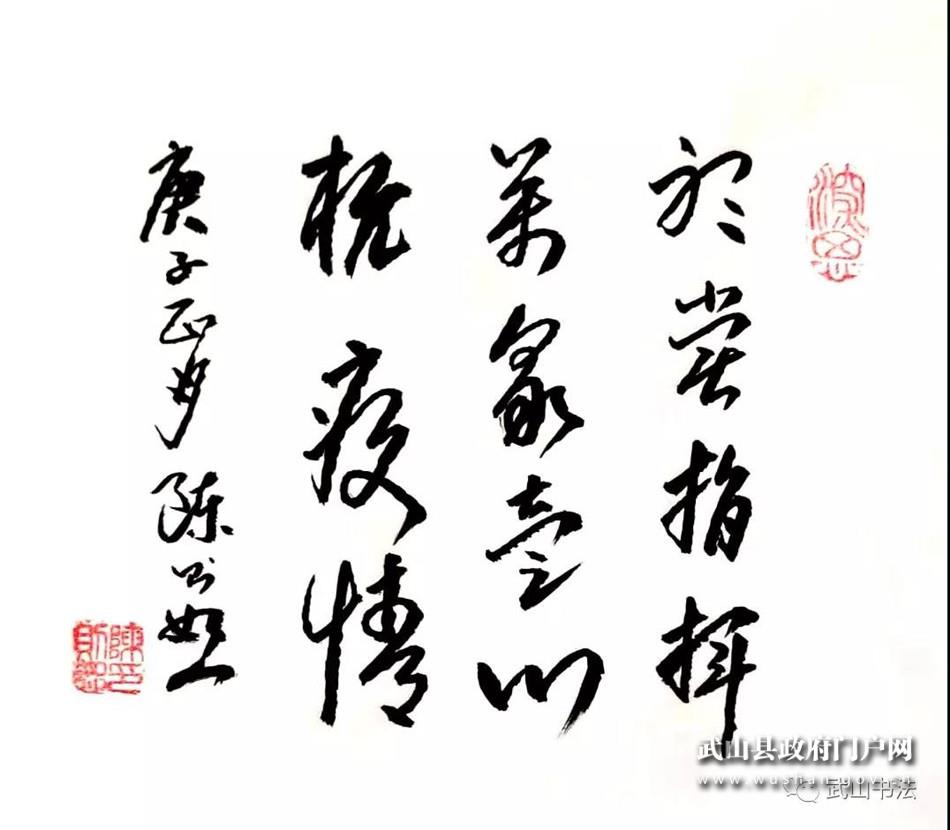 听党指挥
萬众壹心
抗疫情
庚子正月 陈
武山县政府门户网
www.wushan.gov.cn
武山书法